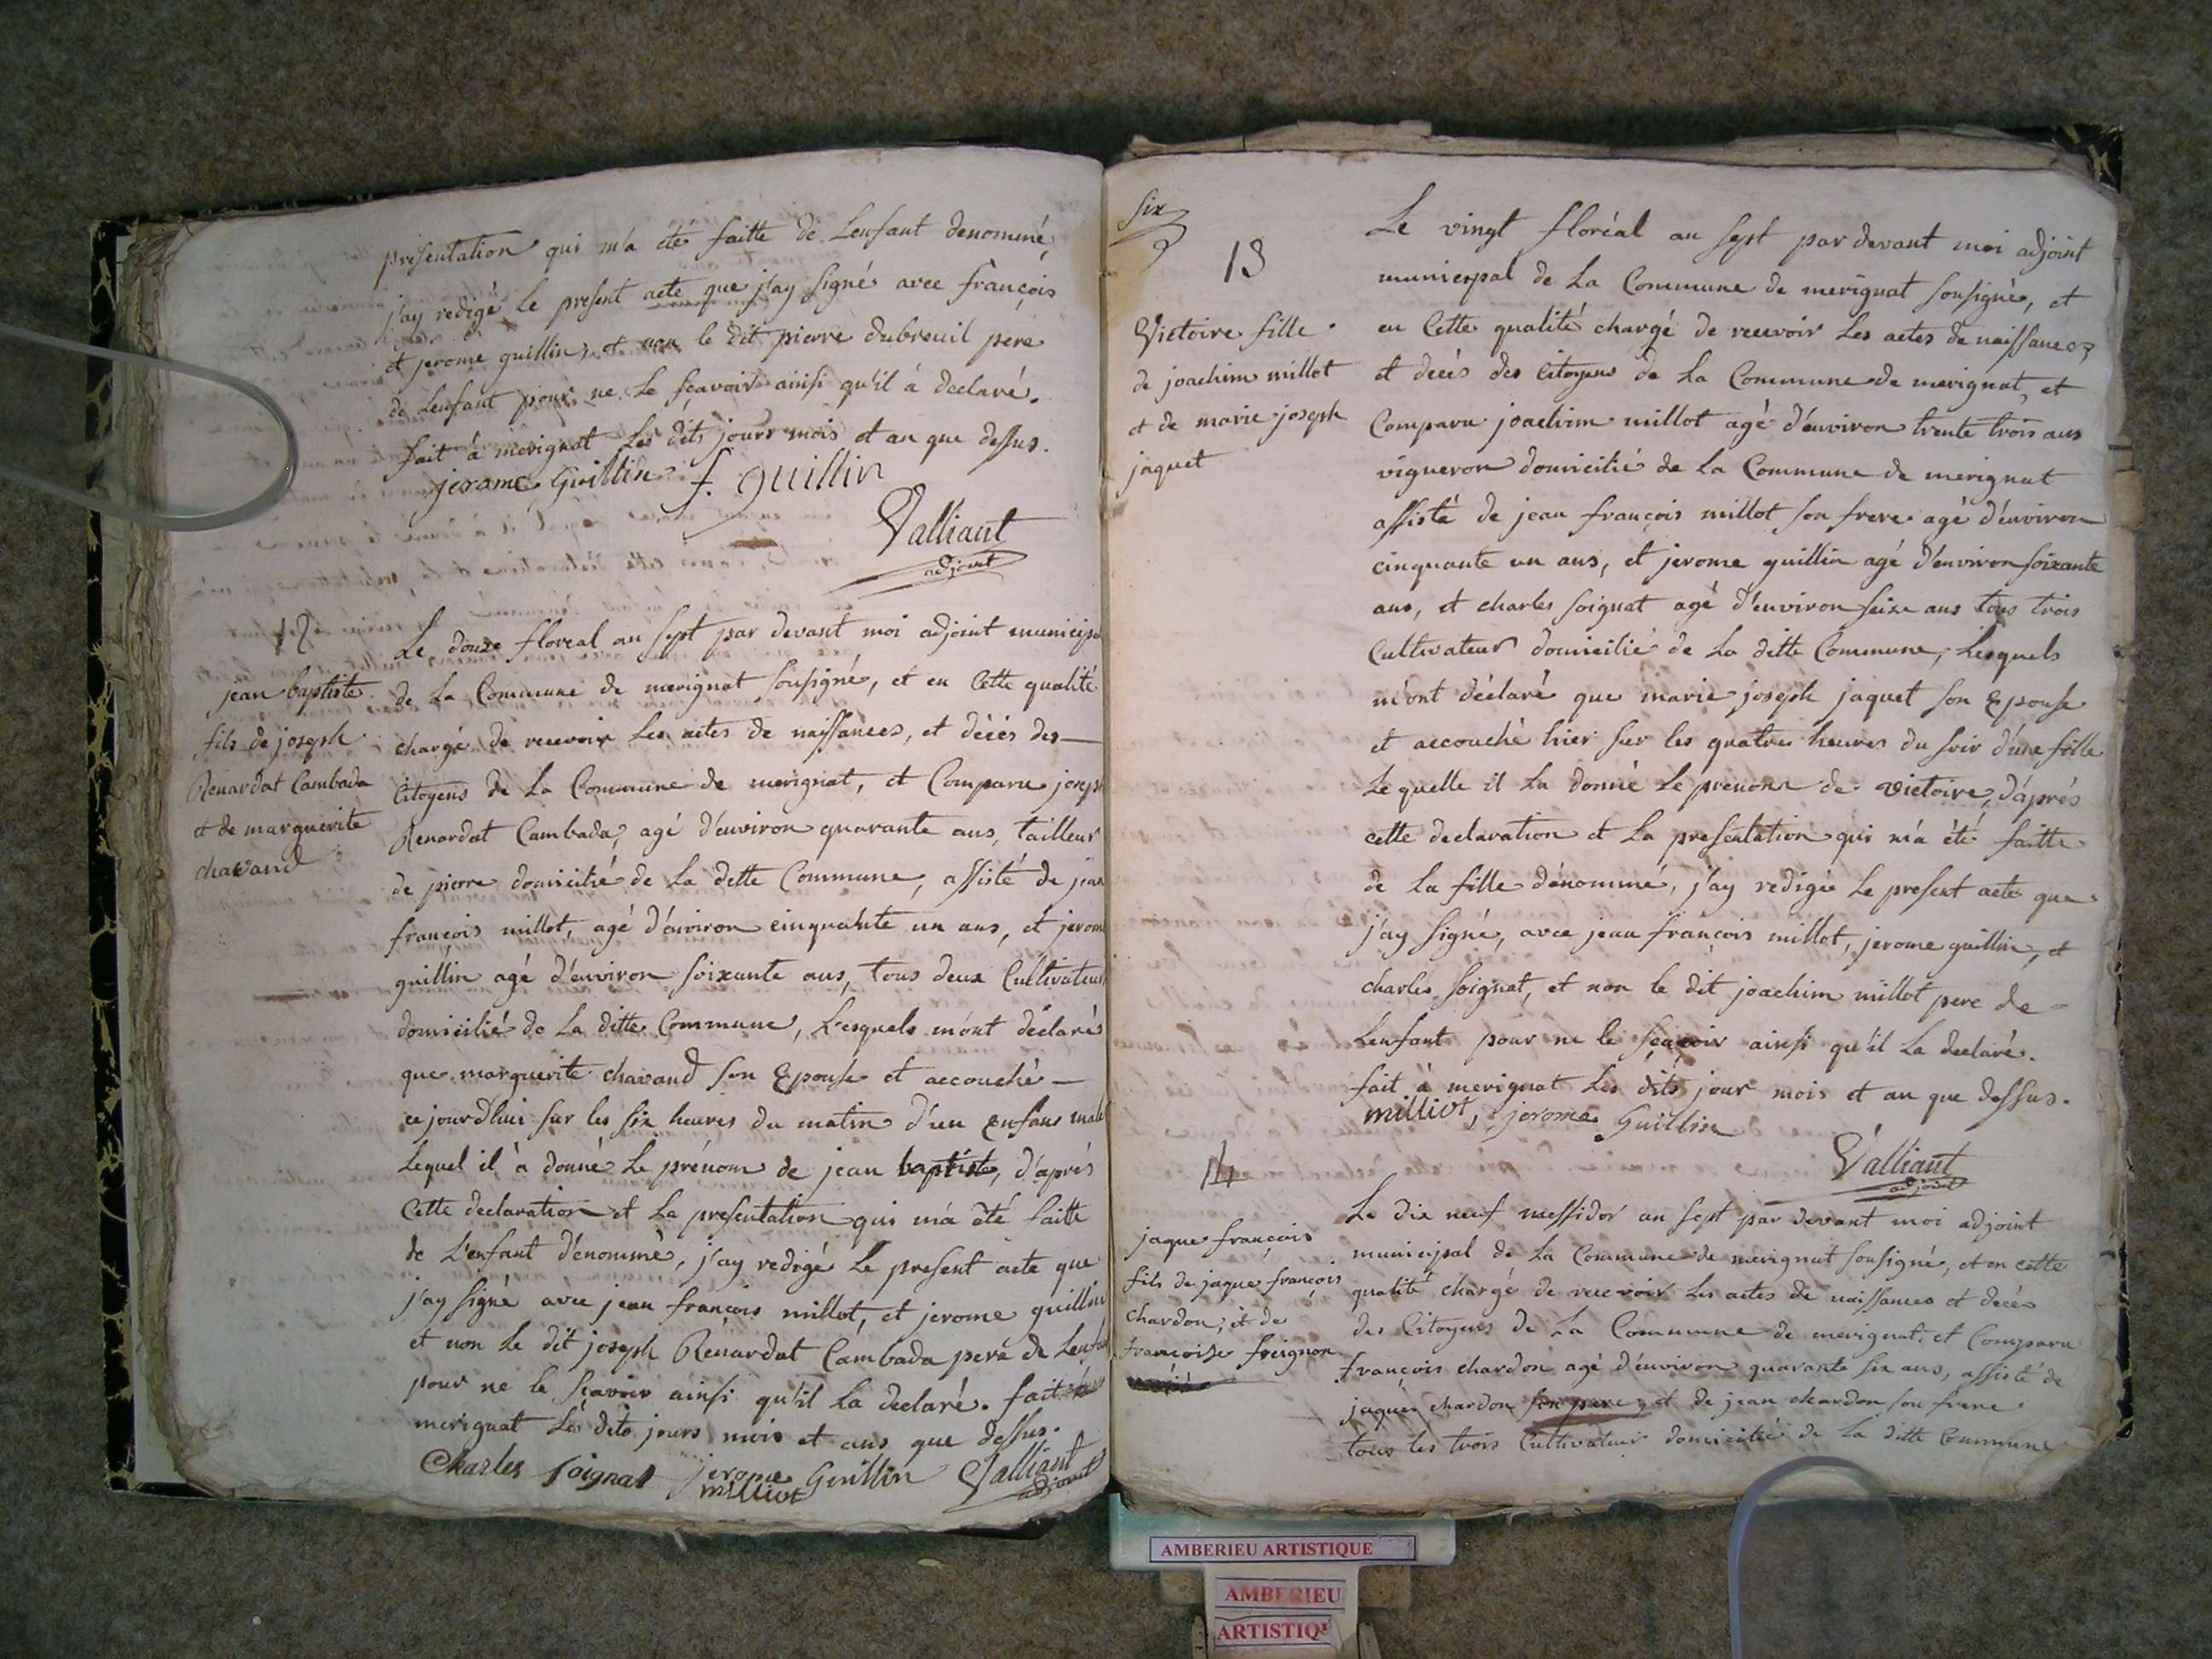 presentation qui m'a été faitte de Lenfant denommé,
j'ay redigé le present acte que j'ay signé avec françois
et jerome guillin, et non le dit pierre dubreuil pere
de Lenfant pour ne le sçavoir ainsi qu'il à declaré.
fait à merignat Les dits jours mois et an que dessus.
jerome Guillin f. guillin
Valliant
adjoint
12
jean baptiste
fils de joseph
Renardat Cambada
et de marguerite
chavand
Le douze floreal an sept par devant moi adjoint municipal
de La Commune de merignat sousigné, et en Cette qualité
chargé de recevoir Les actes de naissances, et décés des
Citoyens de La Commune de merignat, et Comparu joseph
Renardat Cambada, agé d'environ quarante ans, tailleur
de pierre domicilié de La ditte Commune, assisté de jean
françois millot, agé d'environ cinquante un ans, et jerome
guillin agé d'environ soixante ans, tous deux Cultivateurs
domicilié de La ditte Commune, Lesquels m'ont déclaré
que marguerite chavand son Epouse et accouché
ce jourd'hui sur les six heures du matin d'un enfans male
Lequel il à donné Le prénom de jean baptiste, d'aprés
Cette declaration et La presentation qui m'a été faitte
de L'enfant dénommé, j'ay redigé Le present acte que
j'ay signé avec jean françois millot, et jerome guillin
et non Le dit joseph Renardat Cambada pere de Lenfant
pour ne le sçavoir ainsi qu'il La declaré. fait à
merignat Les dits jours mois et ans que dessus.
Charles soignat jerome Guillin Valliant
milliot adjoint
six
13
Victoire fille
de joachim millot
et de marie joseph
jaquet
Le vingt floréal an sept par devant moi adjoint
municipal de La Commune de merignat sousigné, et
en Cette qualité chargé de recevoir Les actes de naissances
et decés des Citoyens de La Commune de merignat, et
Comparu joachim millot agé d'environ trente trois ans
vigneron domicilié de La Commune de merignat
assisté de jean françois millot son frere agé d'environ
cinquante un ans, et jerome guillin agé d'environ soixante
ans, et charles soignat agé d'environ seize ans tous trois
Cultivateur domicilié de La ditte Commune, Lesquels
m'ont déclaré que marie joseph jaquet son Epouse
et accouché hier sur les quatres heures du soir d'une fille
Lequelle il La donné Le prenom de victoire, d'aprés
cette declaration et La presentation qui m'a été faitte
de La fille dénommé, j'ay redigé Le present acte que
j'ay signé, avec jean françois millot, jerome guillin, et
charles soignat, et non le dit joachim millot pere de
Lenfant pour ne le sçavoir ainsi qu'il La declaré.
fait à merignat Les dits jour mois et an que dessus.
milliot, jerome Guillin
Valliant
adjoint
14
jaque françois
fils de jaque françois
chardon, et de
françoise freignon
Le dix neuf messidor an sept par devant moi adjoint
municipal de La Commune de merignat sousigné, et en cette
qualité chargé de recevoir Les actes de naissances et decés
des Citoyens de La Commune de merignat, et Comparu
françois chardon agé d'environ quarante six ans, assisté de
jaques chardon son pere, et de jean chardon son frere
tous les trois Cultivateur domicilié de La ditte Commune
AMBERIEU ARTISTIQUE
AMBERIEU
ARTISTIQ